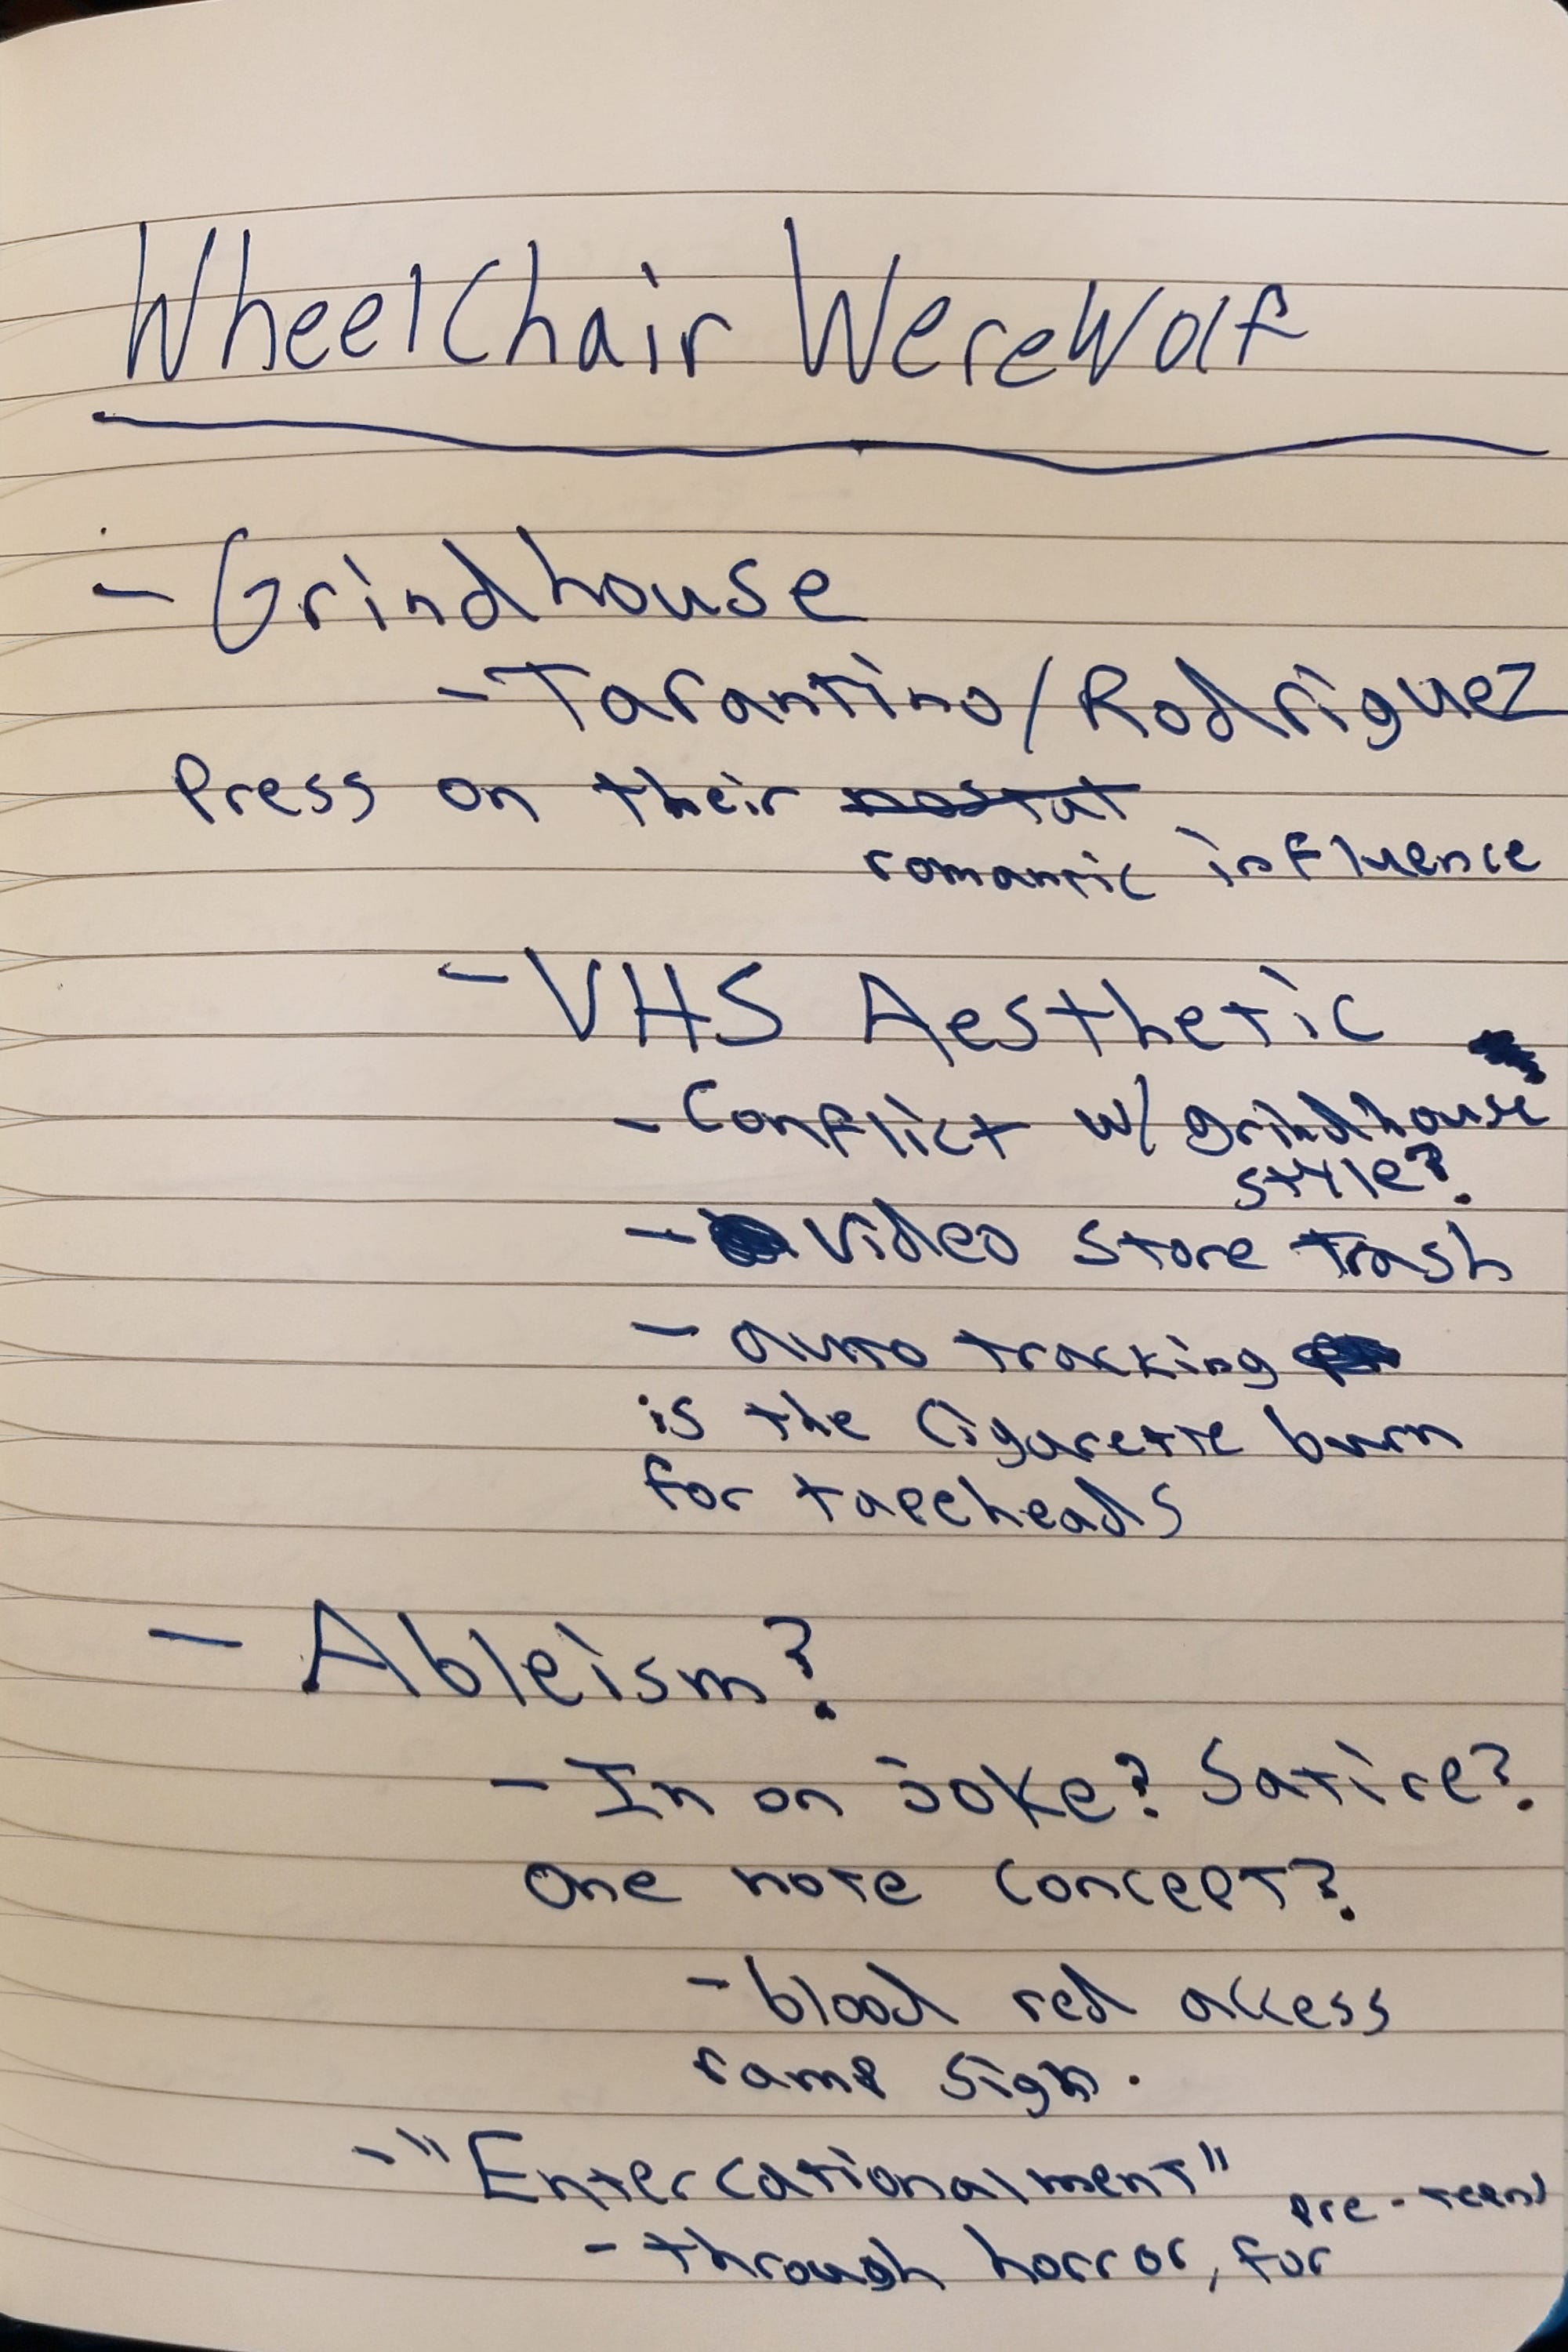 WheelChair WereWolf
- Grindhouse
- Tarantino/Rodriguez
Press on their nostal
romantic influence
- VHS Aesthetic
- Conflict w/ grindhouse
style?
- video store trash
- auto tracking
is the cigarette burn
for tapeheads
- Ableism?
- In on joke? Satire?
One note concept?
- blood red access
ramp sign.
- "Entercationalment"
pre-teens
- through horror, for